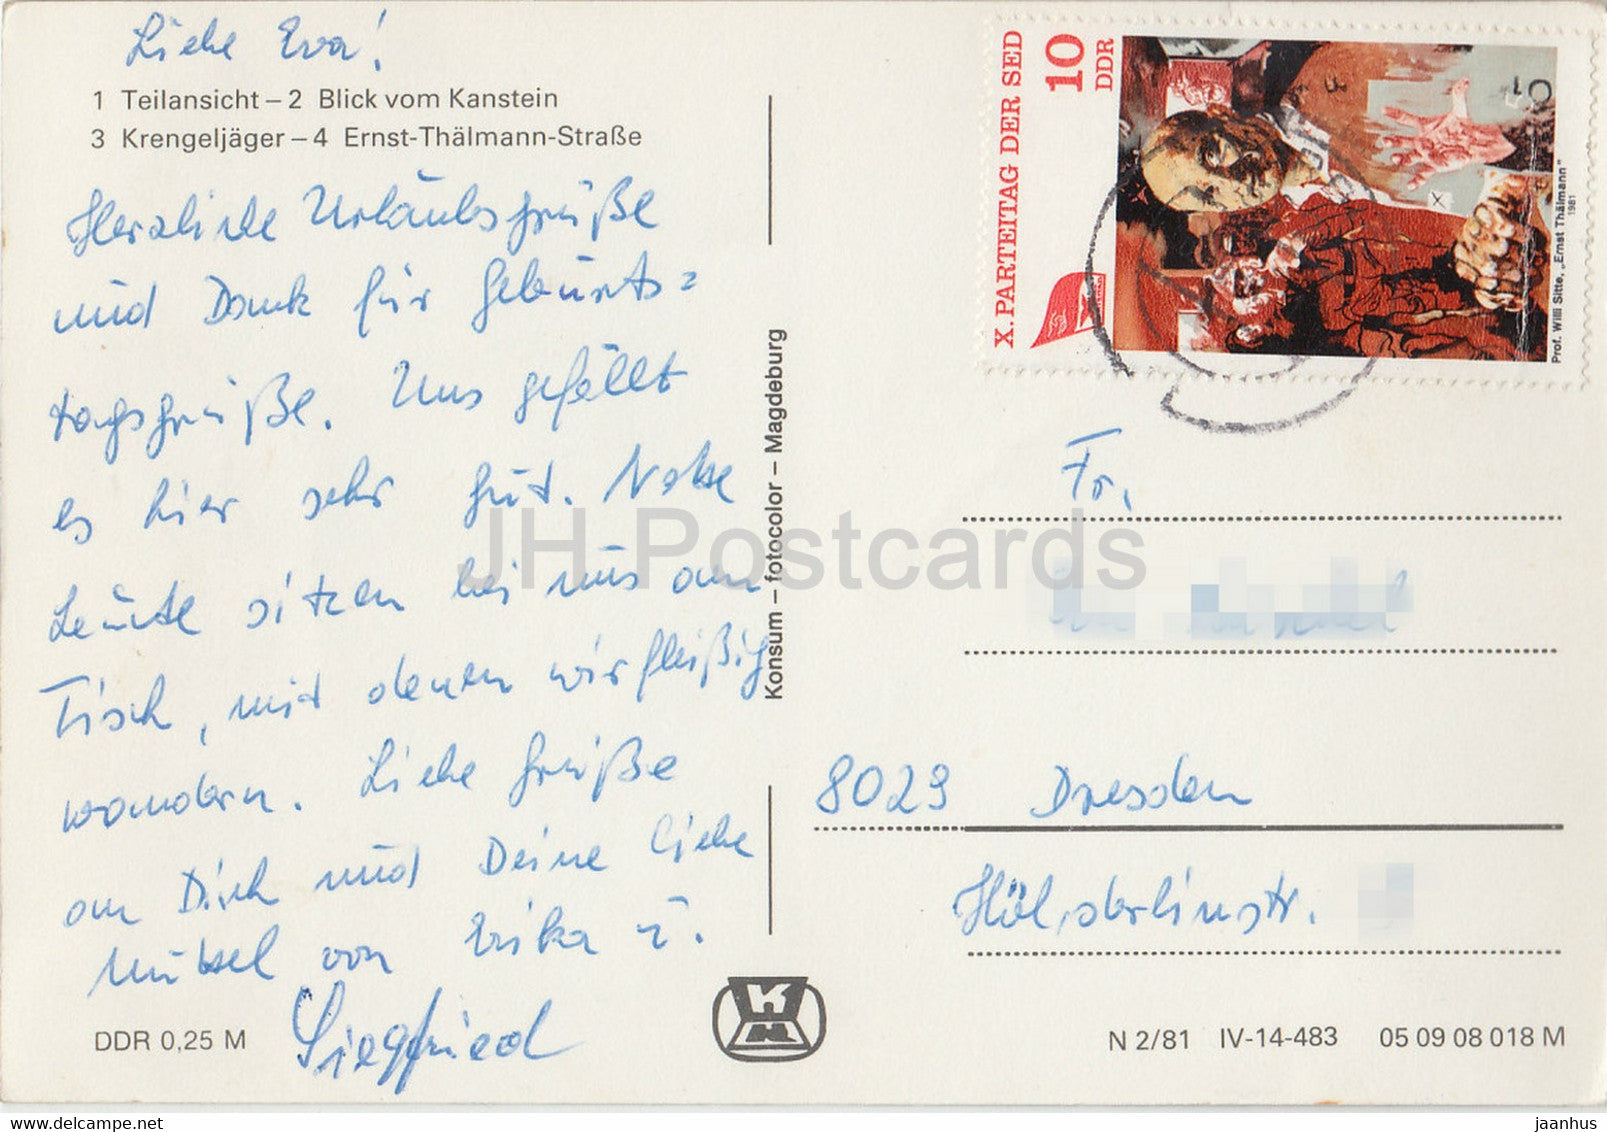 Liebe Eva!
1 Teilansicht – 2 Blick vom Kanstein
3 Krengeljäger – 4 Ernst-Thälmann-Straße
Herzliche Urlaubsgrüße
und Dank für Geburts=
tagsgrüße. Uns gefällt
es hier sehr gut. Nette
Leute sitzen bei uns am
Tisch, mit denen wir fleißig
wandern. Liebe Grüße
an Dich und Deine liebe
von Erika u.
Siegfried
DDR 0,25 M
Konsum – fotocolor – Magdeburg
X. PARTEITAG DER SED
10
DDR
Prof. Willi Sitte, „Ernst Thälmann"
1981
Fr.
8029 Dresden
Hölderlinstr.
N 2/81 IV-14-483 05 09 08 018 M
JH Postcards
jaanhus
www.delcampe.net